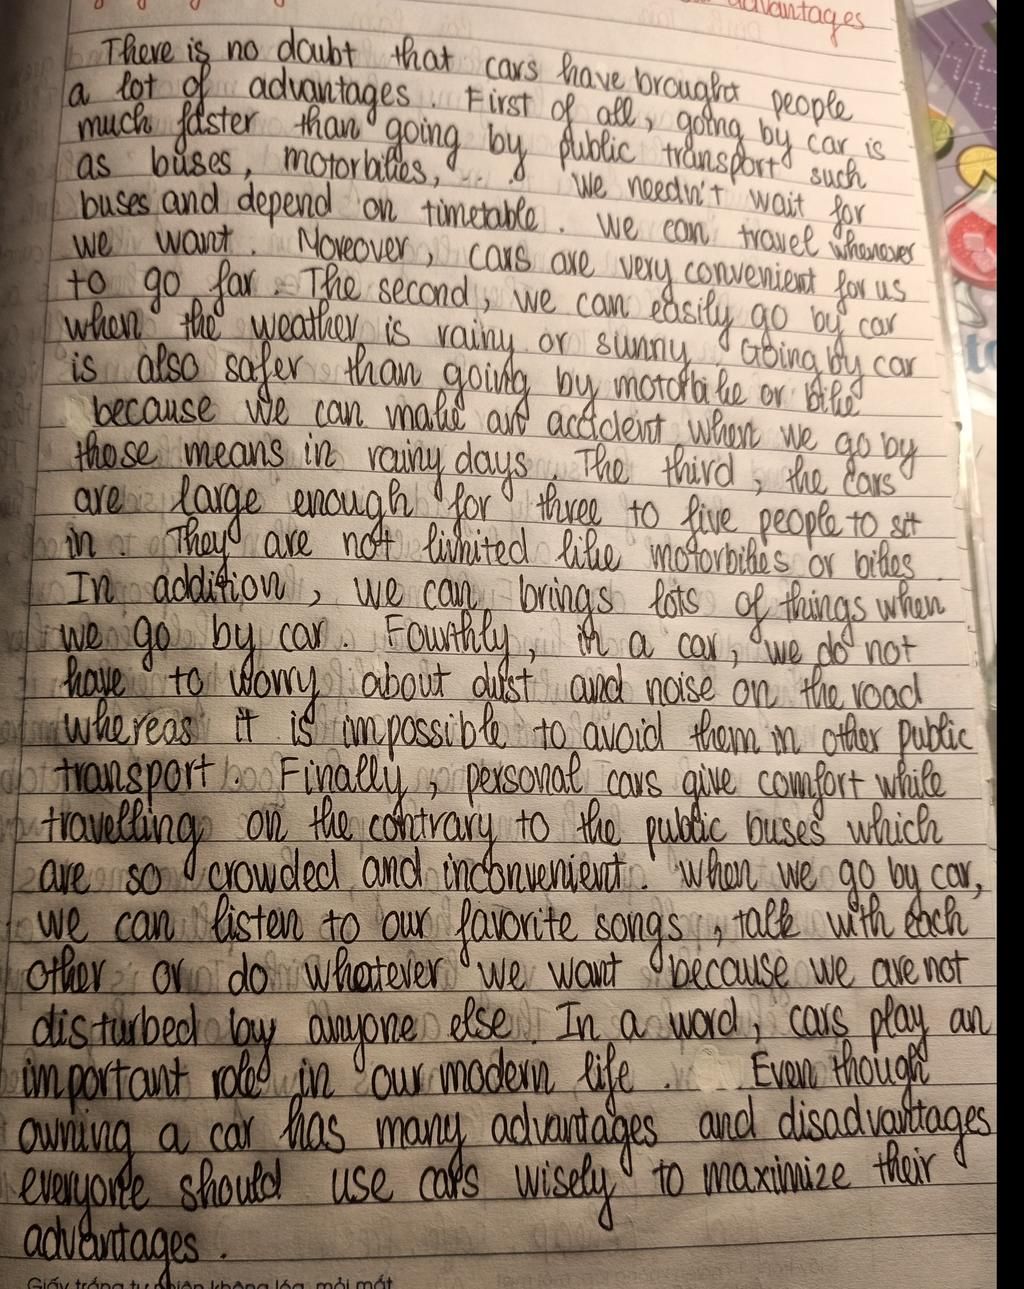 advantages
There is no doubt that cars have brought people
a lot of advantages. First of all, going by car is
much faster than going by public transport such
as buses, motorbikes, ... . We needn't wait for
buses and depend on timetable. We can travel whenever
we want. Moreover, cars are very convenient for us
to go far. The second, we can easily go by car
when the weather is rainy or sunny. Going by car
is also safer than going by motorbike or bike
because we can make an accident when we go by
those means in rainy days. The third, the cars
are large enough for three to five people to sit
in. They are not limited like motorbikes or bikes.
In addition, we can brings lots of things when
we go by car. Fourthly, in a car, we do not
have to worry about dust and noise on the road
whereas it is impossible to avoid them in other public
transport. Finally, personal cars give comfort while
travelling on the contrary to the public buses which
are so crowded and inconvenient. When we go by car,
we can listen to our favorite songs, talk with each
other or do whatever we want because we are not
disturbed by anyone else. In a word, cars play an
important role in our modern life. Even though
owning a car has many advantages and disadvantages
everyone should use cars wisely to maximize their
advantages.
Giấy trắng tự nhiên không lóa, mỏi mắt